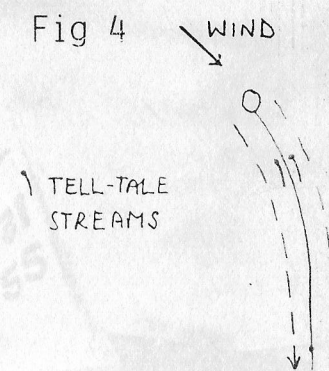 Fig 4
WIND
TELL-TALE
STREAMS